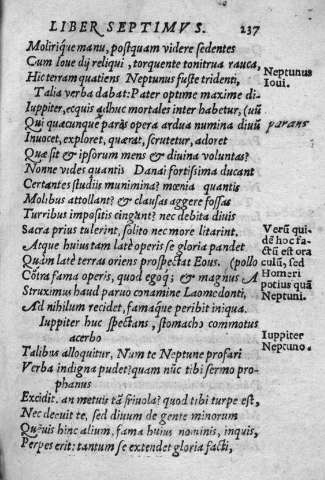 LIBER SEPTIMVS. 237
Moliriq́ue manu, postquam videre sedentes
Cum Ioue dij reliqui, torquente tonitrua rauca,
Hic terram quatiens Neptunus fuste tridenti,
Neptunus
Ioui.
Talia verba dabat: Pater optime maxime di-
Iuppiter, ecquis adhuc mortales inter habetur, (uũ
Qui quacunque parãs opera ardua numina diuũ
parans
Inuocet, exploret, quærat, scrutetur, adoret
Quæ sit & ipsorum mens & diuina voluntas?
Nonne vides quantis Danai fortissima ducant
Certantes studiis munimina? mœnia quantis
Molibus attollant? & clausas aggere fossas
Turribus impositis cingunt? nec debita diuis
Sacra prius tulerint, solito nec more litarint.
Atque huius tam latè operis se gloria pandet
Quàm latè terras oriens prospectat Eous. (pollo
Cõtra fama operis, quod egoq́; & magnus A
Struximus haud paruo conamine Laomedonti,
Ad nihilum recidet, famaq́ue peribit iniqua.
Verũ qui-
dẽ hoc fa-
ctũ est ora
culũ, sed
Homeri
potius quã
Neptuni.
Iuppiter huc spectans, stomacho commotus
acerbo
Iuppiter
Neptuno.
Talibus alloquitur, Num te Neptune profari
Verba indigna pudet? quam nũc tibi sermo pro-
phanus
Excidit. an metuis tã friuola? quod tibi turpe est,
Nec decuit te, sed diuum de gente minorum
Quẽuis hinc alium, fama huius nominis, inquis,
Perpes erit: tantum se extendet gloria facti,